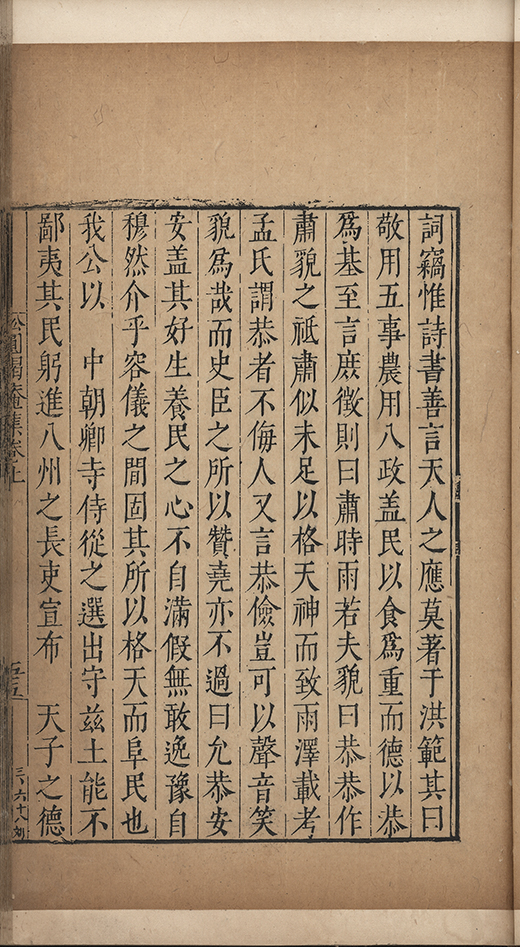 詞竊惟詩書善言天人之應莫著于洪範其曰
敬用五事農用八政盖民以食爲重而德以恭
爲基至言庶徵則曰肅時雨若夫貌曰恭恭作
肅貌之祗肅似未足以格天神而致雨澤載考
孟氏謂恭者不侮人又言恭儉豈可以聲音笑
貌爲哉而史臣之所以贊堯亦不過曰允恭安
安盖其好生養民之心不自滿假無敢逸豫自
穆然介乎容儀之間固其所以格天而阜民也
我公以　中朝卿寺侍從之選出守兹土能不
鄙夷其民躬進八州之長吏宣布　天子之德
集卷上